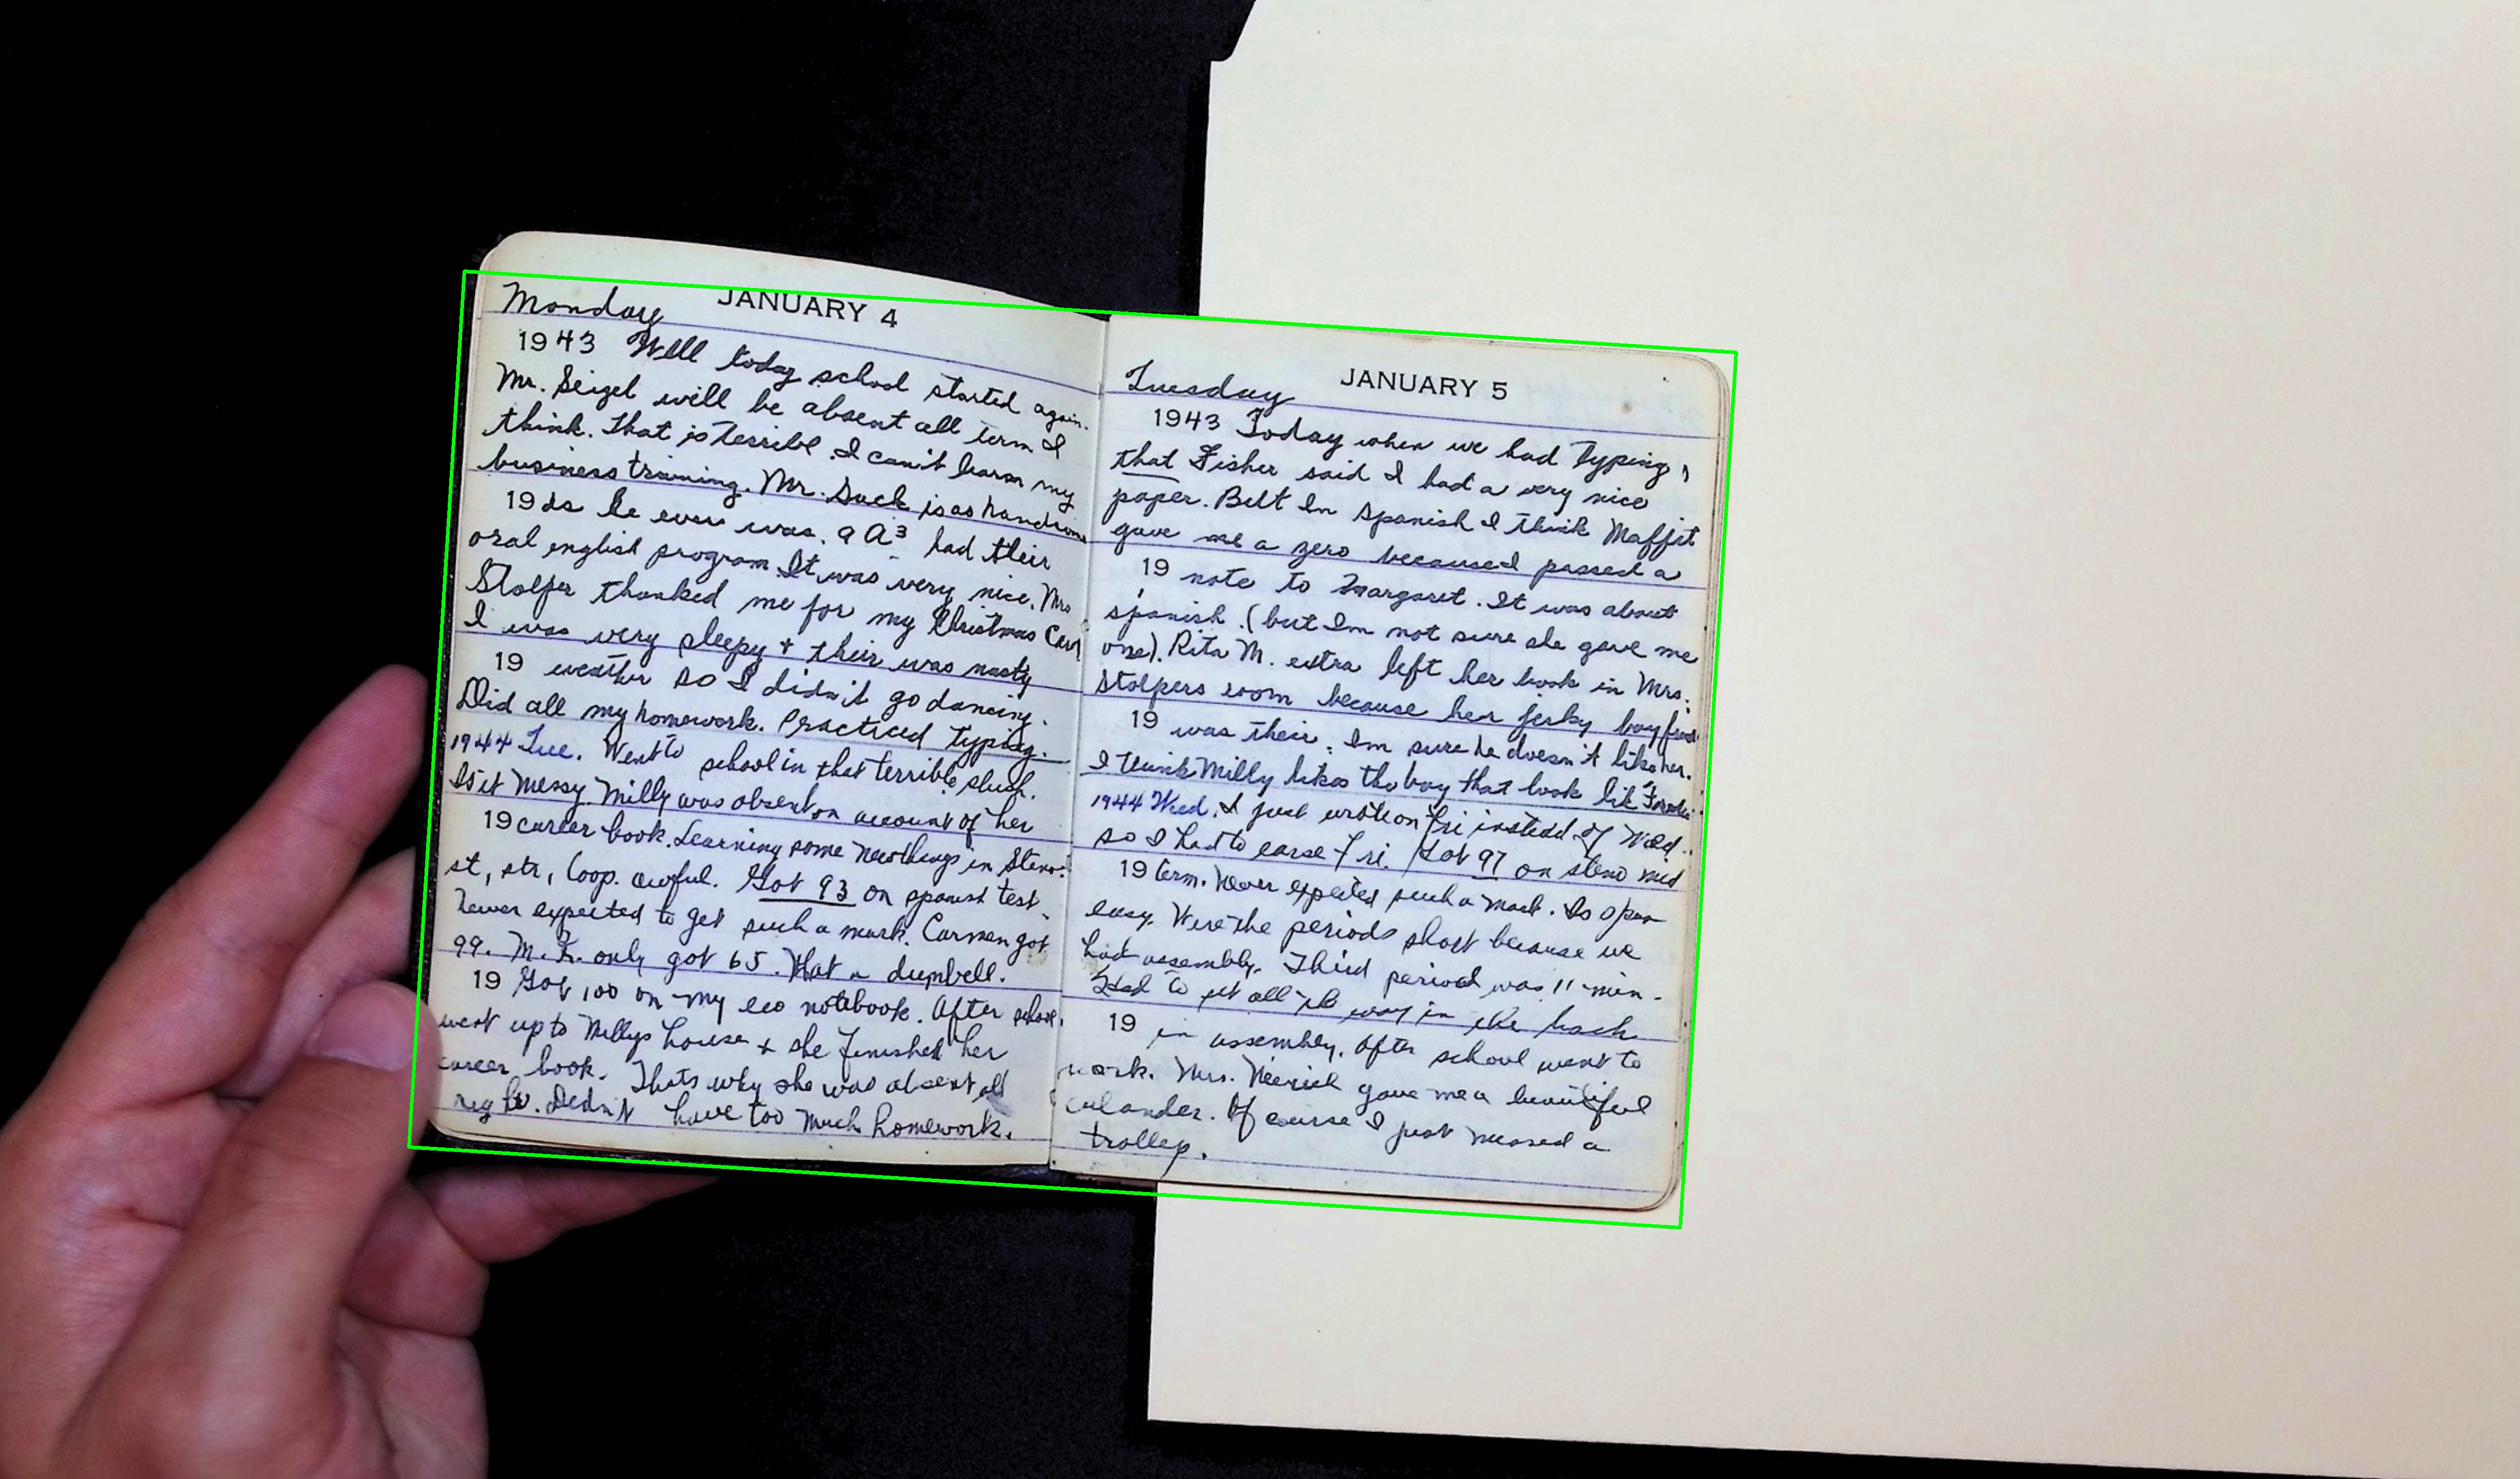 Monday JANUARY 4
1943 Well today school started again.
Mr. Seizel will be absent all term I
think. That is terrible. I can't learn my
business training. Mr. Sack is as handsome
19 as he ever was. 9A3 had their
oral english program. It was very nice. Mrs
Stolper thanked me for my Christmas Card
I was very sleepy + their was nasty
19 weather so I didn't go dancing.
Did all my homework. Practiced typing.
1944 Tue. Went to school in that terrible slush.
Is it messy. Milly was absent on account of her
19 career book. Learning some new things in Steno.
st, str, loop. awful. Got 93 on spanish test.
Never expected to get such a mark. Carmen got
99. M. K. only got 65. What a dumbell.
19 Got 100 on my eco notebook. After school
went up to Millys house + she finished her
career book. Thats why she was absent all
right. Didn't have too much homework.
Tuesday JANUARY 5
1943 Today when we had typing,
that Fisher said I had a very nice
paper. But In Spanish I think Maffit
gave me a zero because I passed a
19 note to Margaret. It was about
spanish. (but Im not sure she gave me
one). Rita M. extra left her book in Mrs.
Stolpers room because her jerky boyfriend
19 was their. Im sure he doesn't like her.
I think Milly likes the boy that look like
1944 Wed. I just wrote on Fri instead of Wed.
so I had to earse Fri. Got 97 on steno mid
19 term. Never expected such a mark. Is
easy. Were the periods short because we
had assembly. Third period was 11 min.
Had to sit all the way in the back
19 in assembly. After school went to
work. Mrs. gave me a beautiful
calander. Of course I just missed a
trolley.